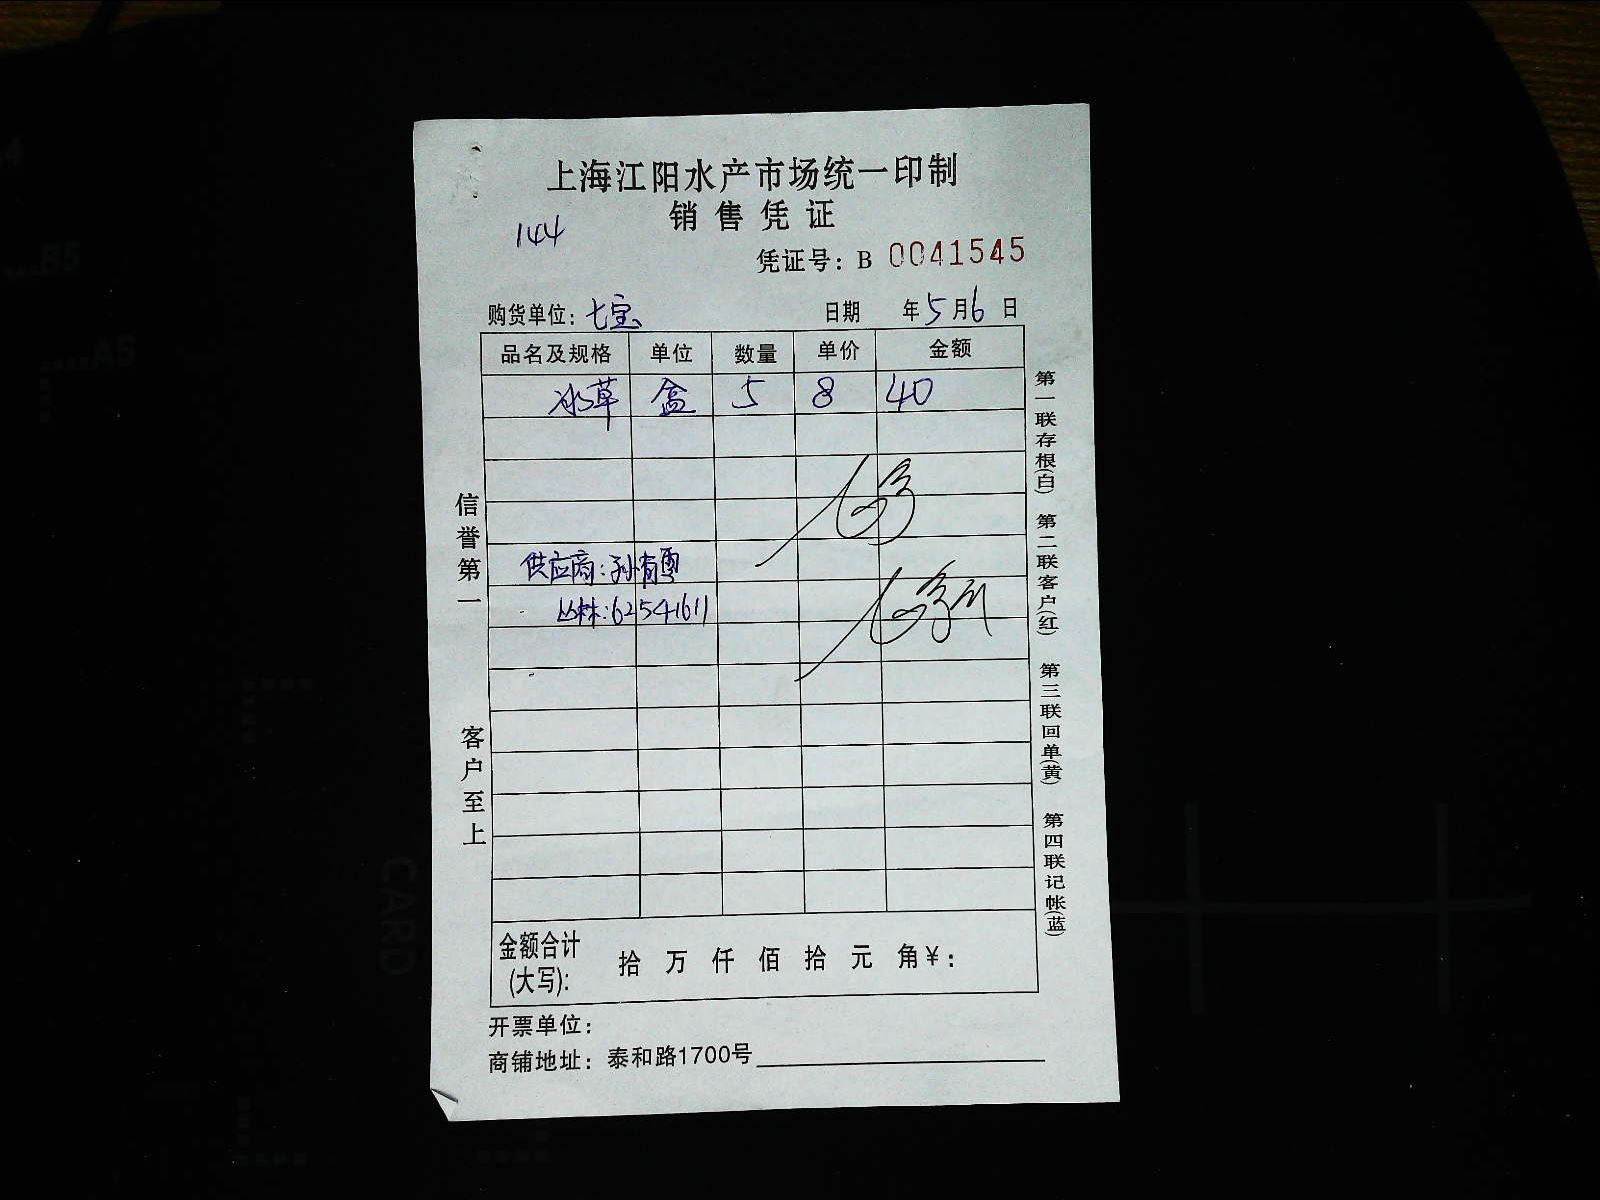 上海江阳水产市场统一印制
销售凭证
144
凭证号：B 0041545
购货单位：七宝 日期 年5月6日
品名及规格 单位 数量 单价 金额
冰草 盒 5 8 40
供应商：孙有雪
丛林：62541611
金额合计(大写)： 拾 万 仟 佰 拾 元 角¥：
开票单位：
商铺地址：泰和路1700号
信誉第一 客户至上
第一联存根(白) 第二联客户(红) 第三联回单(黄) 第四联记帐(蓝)